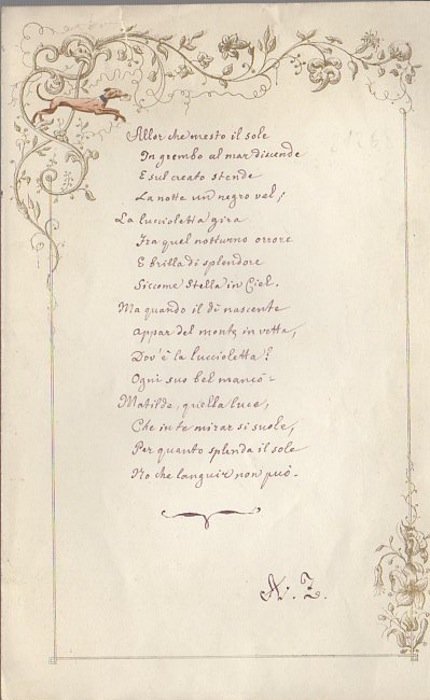 Allor che mesto il sole
In grembo al mar discende
E sul creato stende
La notte un negro vel;
La luccioletta gira
Fra quel notturno orrore
E brilla di splendore
Siccome Stella in Ciel.
Ma quando il dì nascente
Appar del monte in vetta,
Dov'è la luccioletta?
Ogni suo bel mancò -
Matilde, quella luce,
Che in te mirar si suole,
Per quanto splenda il sole
No che languir non può -
N. Z.